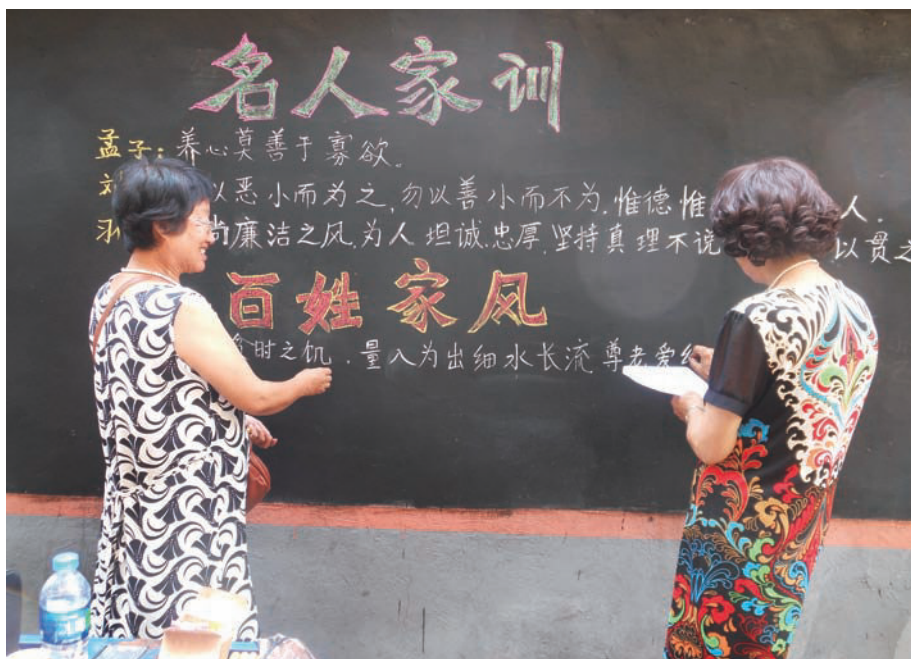 名人家训
孟子：养心莫善于寡欲。
刘 以恶小而为之,勿以善小而不为.惟德惟 人.
尚廉洁之风,为人坦诚.忠厚.坚持真理不说 以贯之
百姓家风
时之饥.量入为出细水长流尊老爱